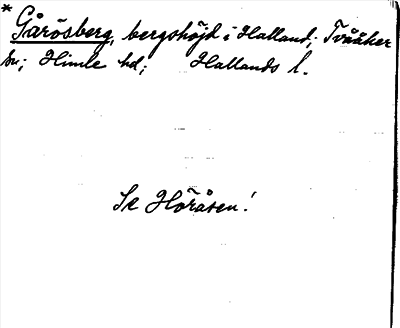 * Gårösberg, bergshöjd i Halland; Tvååker
sn; Himle hd; Hallands l.
Se Höråsen!